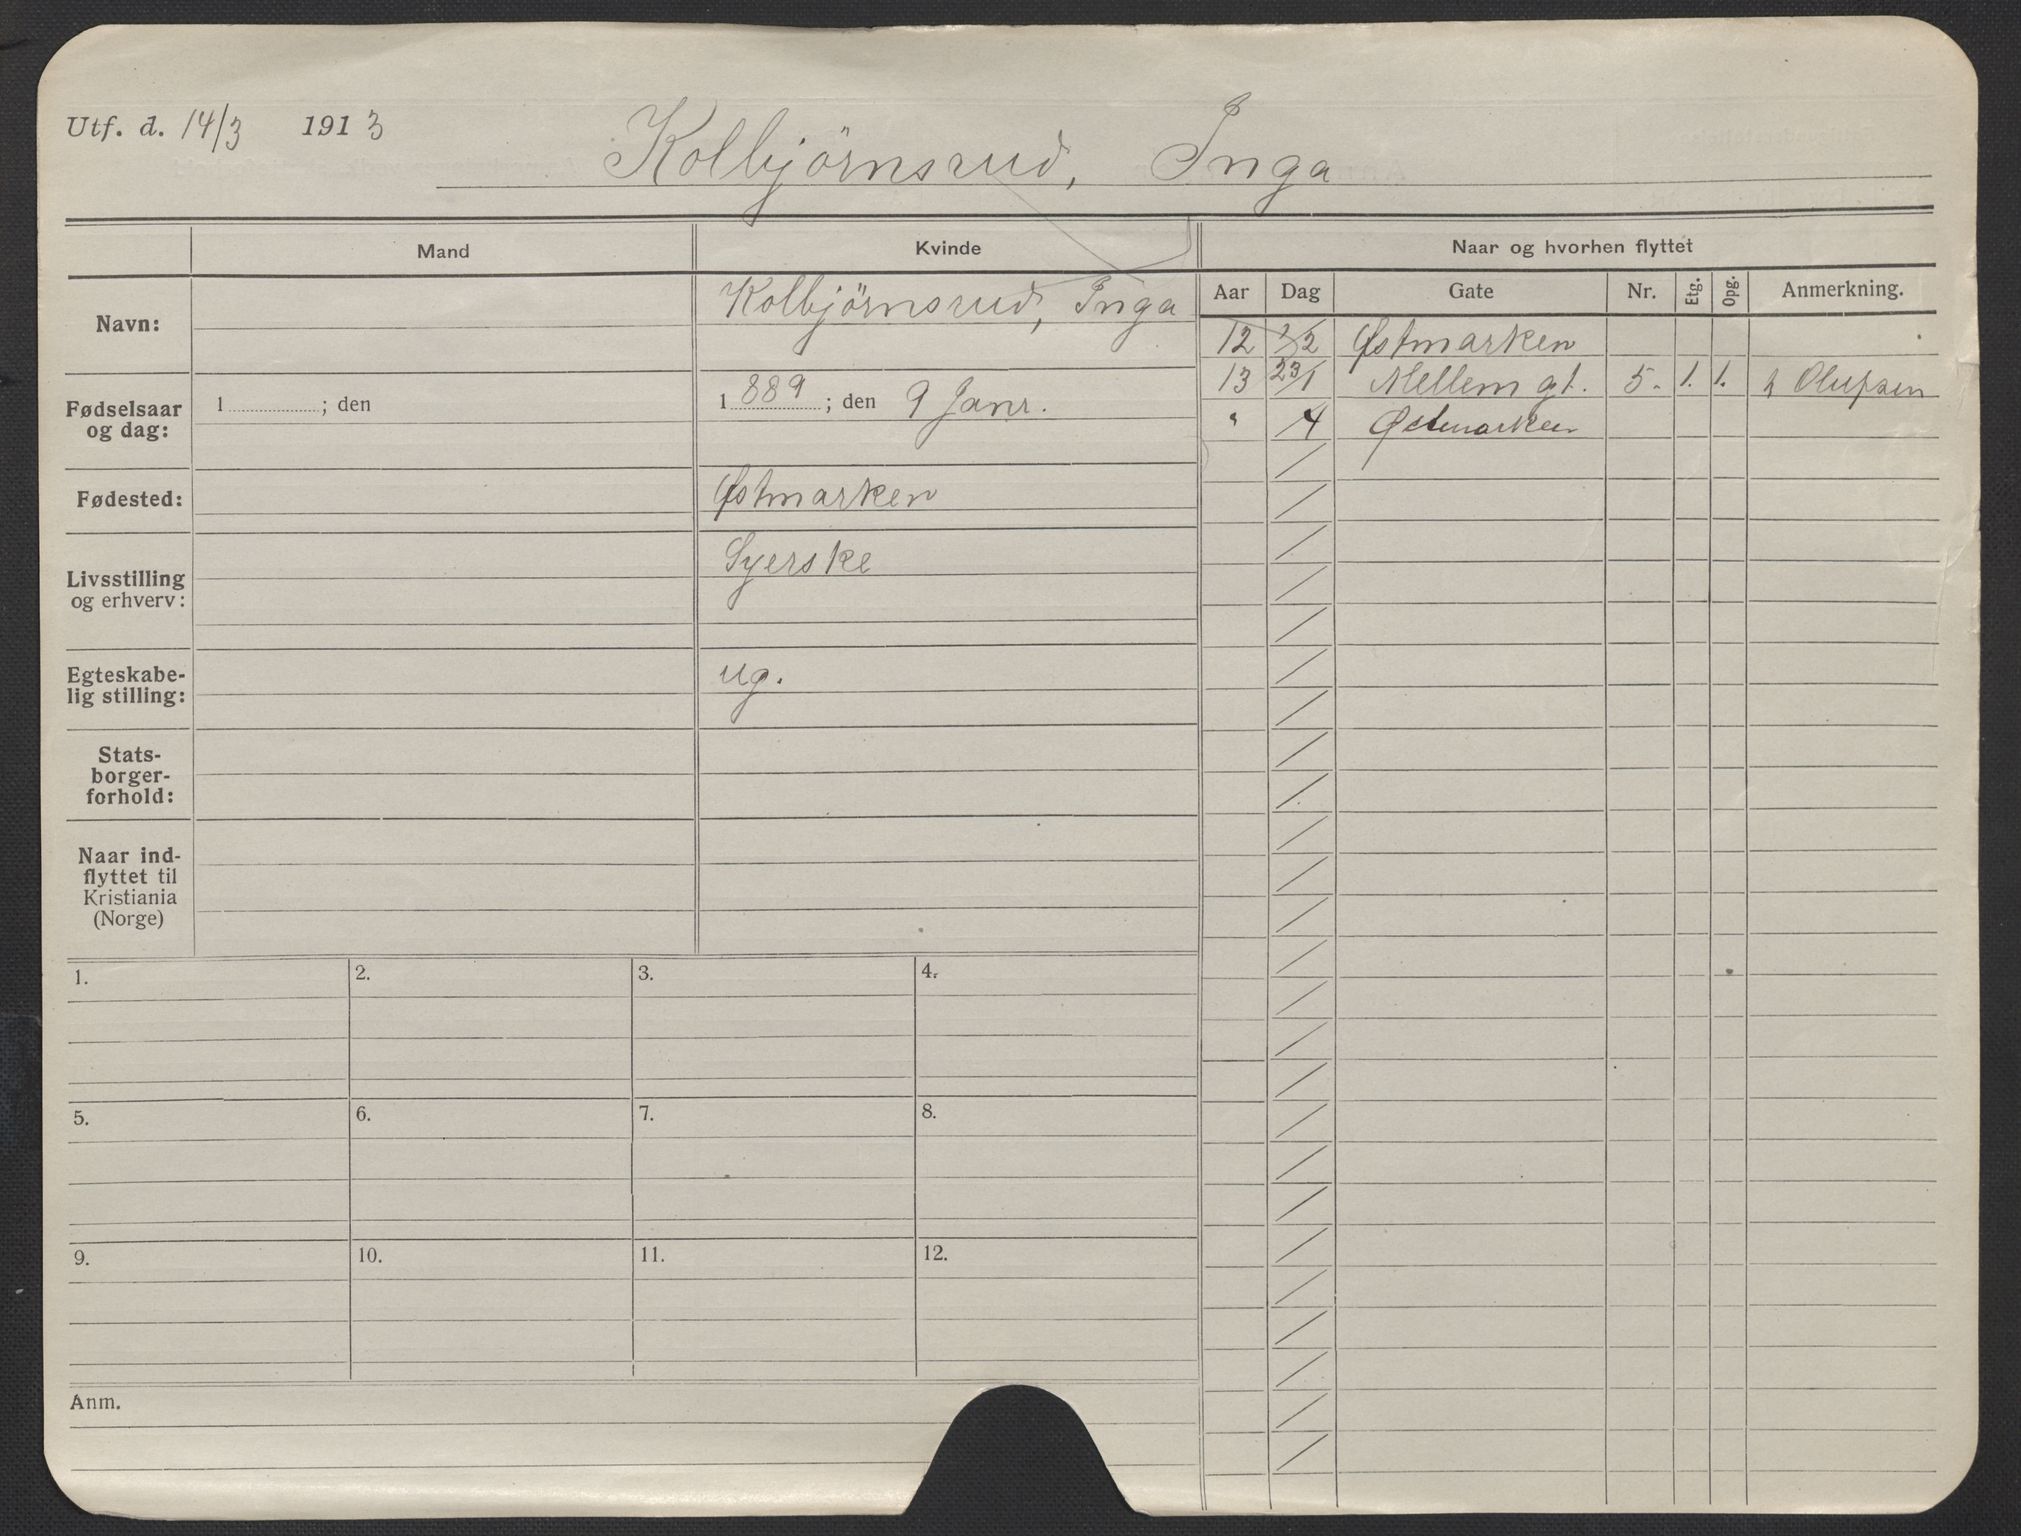 Utf. d. 14/3 1913
Kolbjörnsrud, Inga
Mand
Kvinde
Naar og hvorhen flyttet
Aar Dag Gate Nr. Etg. Opg. Anmerkning.
Navn:
Kolbjörnsrud, Inga
12 /2 Østmarken
13 23/1 Mellem gt. 5. 1. 1. Olufsen
" /4 Østmarken
Fødselsaar
og dag:
1 ; den
1889 ; den 9 Janr.
Fødested:
Østmarken
Livsstilling
og erhverv:
Syerske
Egteskabe-
lig stilling:
ug.
Stats-
borger-
forhold:
Naar ind-
flyttet til
Kristiania
(Norge)
1. 2. 3. 4.
5. 6. 7. 8.
9. 10. 11. 12.
Anm.